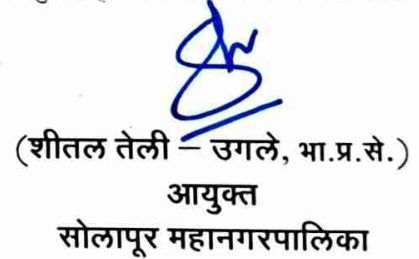 (शीतल तेली – उगले, भा.प्र.से.)
आयुक्त
सोलापूर महानगरपालिका